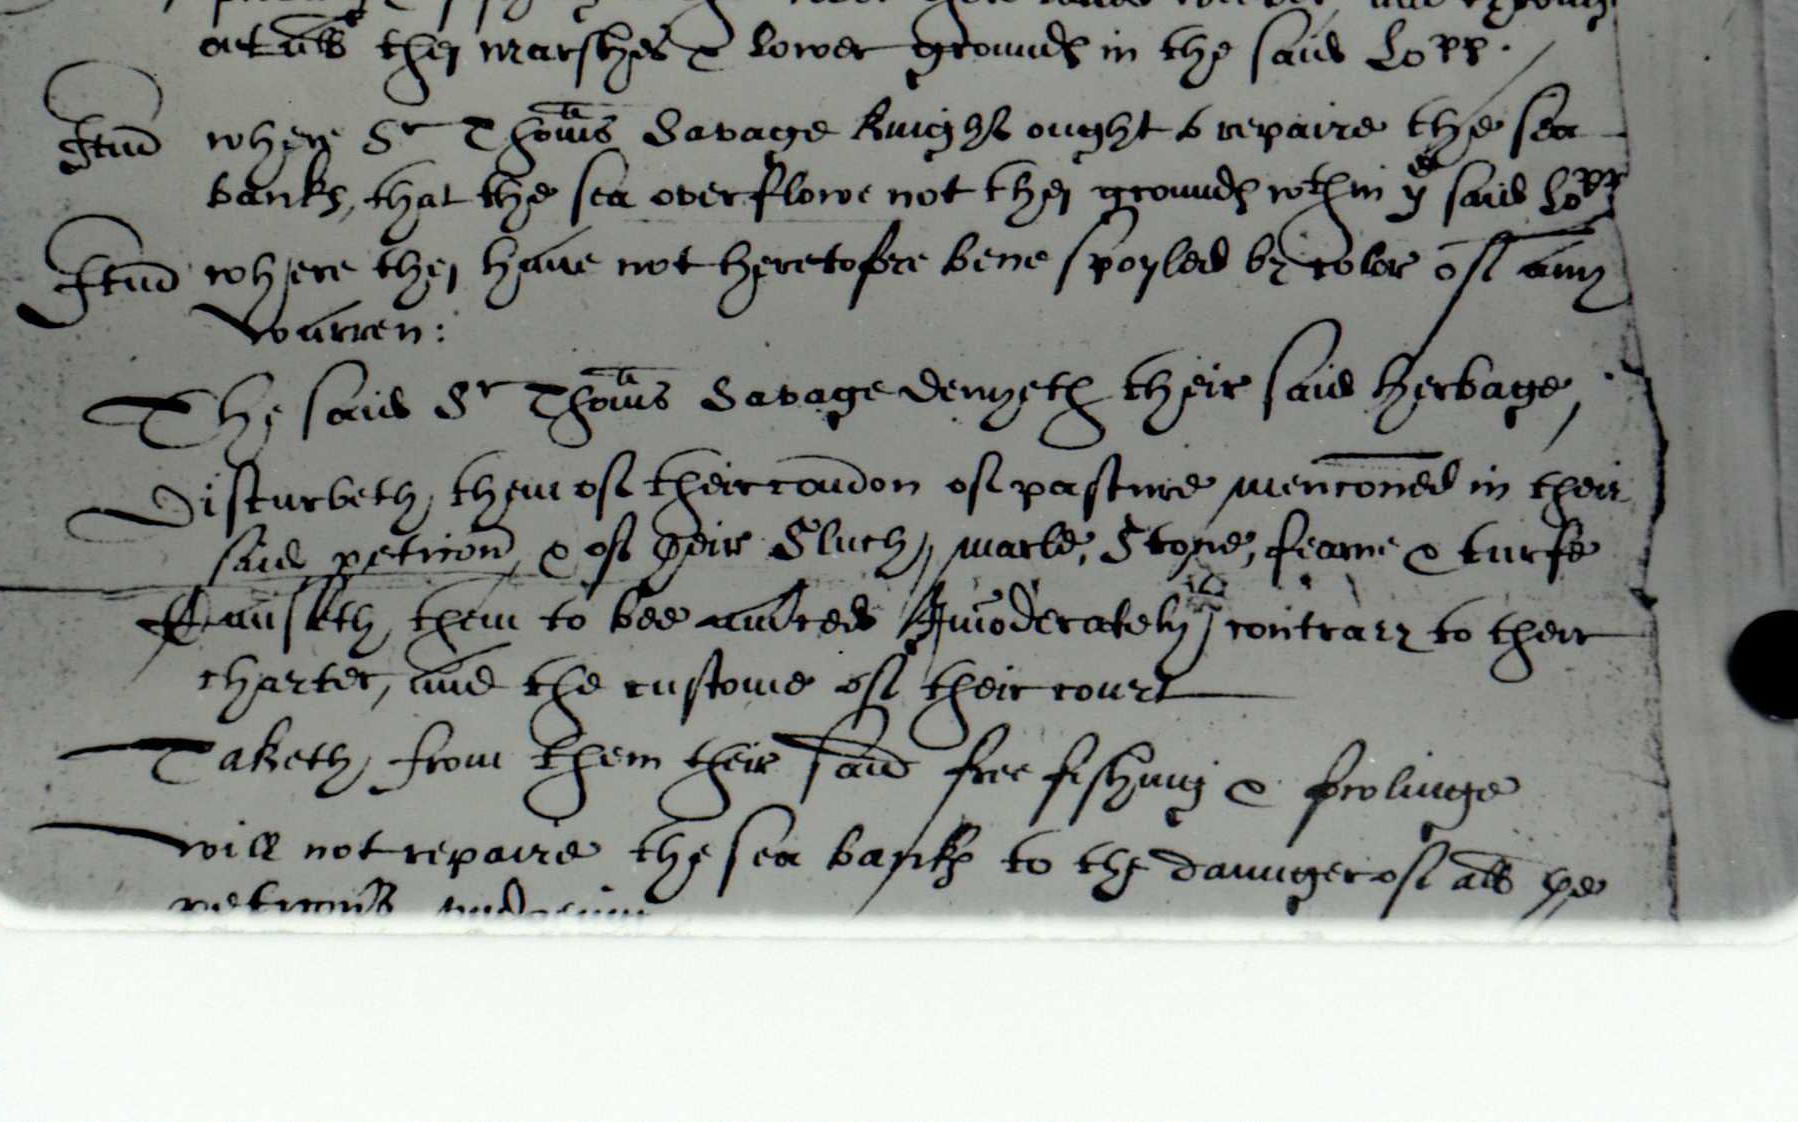 the marshes & lower grounds in the said Lopp.
Itm where Sr Thoms Savage knight ought to repaire the sea
banks, that the sea overflowe not the grounds wthin ye said Lopp
Itm where they haue not heretofore bene spoyled by color of any
warren:
The said Sr Thoms Savage denyeth their said herbage,
Disturbeth them of their comon of pasture menconed in their
said peticon, & of their Sluch, marle, Stone, fearne & turfe
Causeth them to bee amrced Imoderately contrary to their
charter, and the custome of their court
Taketh from them their said free fishing & fowlinge
will not repaire the sea banks to the daunger of all ye